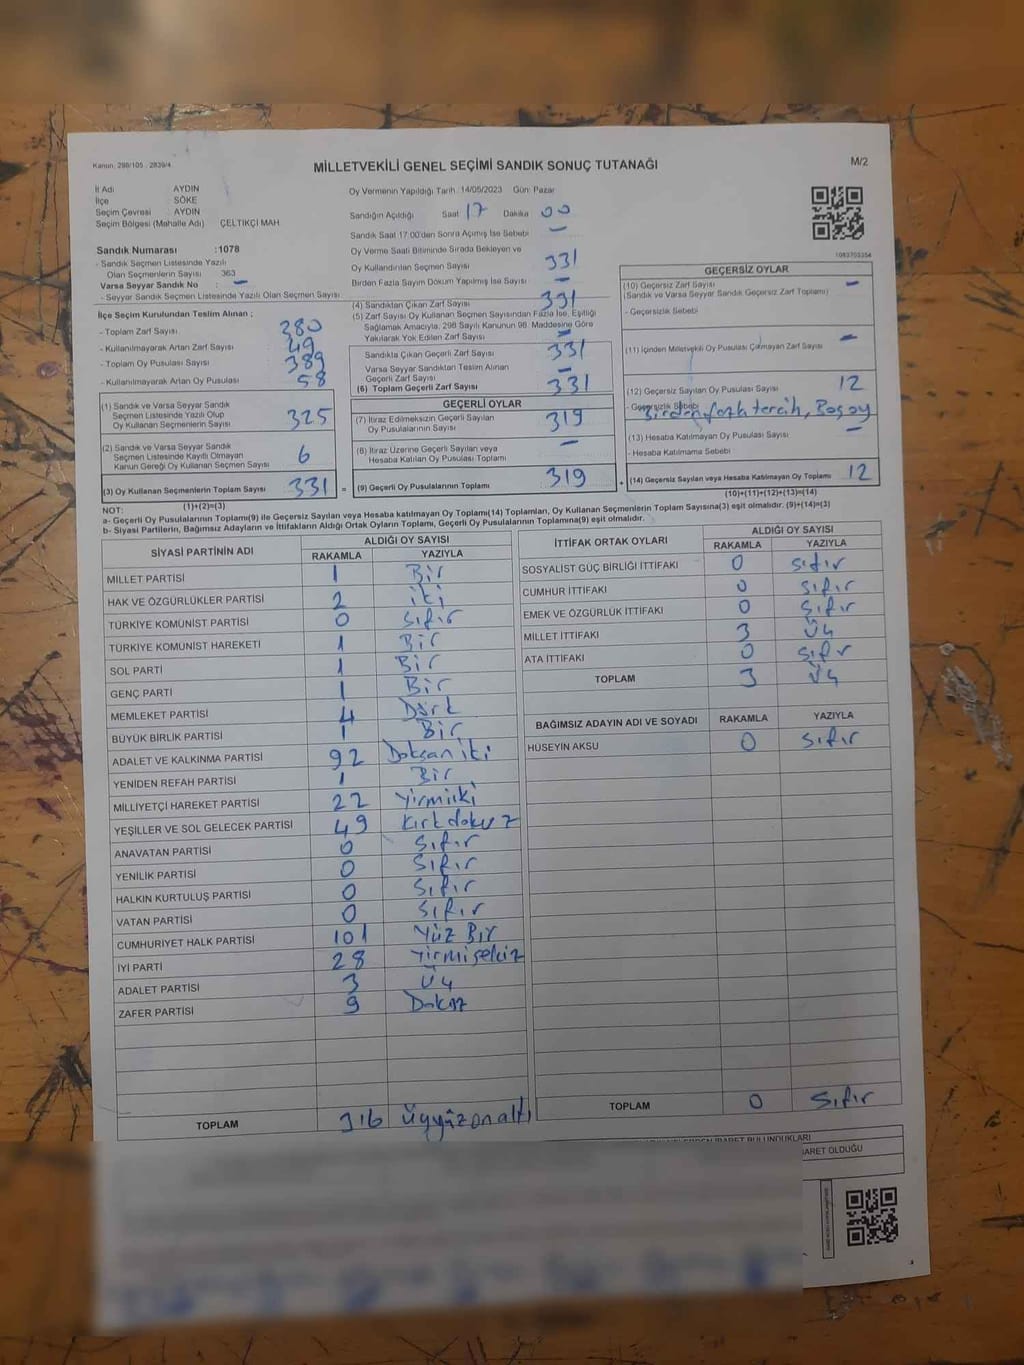 Kanun, 298/105 , 2839/4
MİLLETVEKİLİ GENEL SEÇİMİ SANDIK SONUÇ TUTANAĞI
M/2
İl Adı AYDIN
İlçe SÖKE
Seçim Çevresi : AYDIN
Seçim Bölgesi (Mahalle Adı) ÇELTİKÇİ MAH
Sandık Numarası : 1078
- Sandık Seçmen Listesinde Yazılı
Olan Seçmenlerin Sayısı 363
Varsa Seyyar Sandık No : –
- Seyyar Sandık Seçmen Listesinde Yazılı Olan Seçmen Sayısı
Oy Vermenin Yapıldığı Tarih 14/05/2023 Gün: Pazar
Sandığın Açıldığı Saat 17 Dakika 00
Sandık Saat 17:00'den Sonra Açılmış İse Sebebi –
Oy Verme Saati Bitiminde Sırada Bekleyen ve
Oy Kullandırılan Seçmen Sayısı 331
Birden Fazla Sayım Döküm Yapılmış İse Sayısı –
1083703354
İlçe Seçim Kurulundan Teslim Alınan ;
- Toplam Zarf Sayısı 380
- Kullanılmayarak Artan Zarf Sayısı 49
- Toplam Oy Pusulası Sayısı 389
- Kullanılmayarak Artan Oy Pusulası 58
(1) Sandık ve Varsa Seyyar Sandık
Seçmen Listesinde Yazılı Olup
Oy Kullanan Seçmenlerin Sayısı 325
(2) Sandık ve Varsa Seyyar Sandık
Seçmen Listesinde Kayıtlı Olmayan
Kanun Gereği Oy Kullanan Seçmen Sayısı 6
(3) Oy Kullanan Seçmenlerin Toplam Sayısı 331 =
(4) Sandıktan Çıkan Zarf Sayısı 331
(5) Zarf Sayısı Oy Kullanan Seçmen Sayısından Fazla İse, Eşitliği
Sağlamak Amacıyla, 298 Sayılı Kanunun 98. Maddesine Göre
Yakılarak Yok Edilen Zarf Sayısı –
Sandıkta Çıkan Geçerli Zarf Sayısı 331
Varsa Seyyar Sandıktan Teslim Alınan
Geçerli Zarf Sayısı –
(6) Toplam Geçerli Zarf Sayısı 331
GEÇERLİ OYLAR
(7) İtiraz Edilmeksizin Geçerli Sayılan
Oy Pusulalarının Sayısı 319
(8) İtiraz Üzerine Geçerli Sayılan veya
Hesaba Katılan Oy Pusulası Toplamı –
(9) Geçerli Oy Pusulalarının Toplamı 319 +
GEÇERSİZ OYLAR
(10) Geçersiz Zarf Sayısı –
(Sandık ve Varsa Seyyar Sandık Geçersiz Zarf Toplamı)
- Geçersizlik Sebebi
(11) İçinden Milletvekili Oy Pusulası Çıkmayan Zarf Sayısı –
(12) Geçersiz Sayılan Oy Pusulası Sayısı 12
- Geçersizlik Sebebi Birden fazla tercih, Boş oy
(13) Hesaba Katılmayan Oy Pusulası Sayısı –
- Hesaba Katılmama Sebebi
(14) Geçersiz Sayılan veya Hesaba Katılmayan Oy Toplamı 12
(1)+(2)=(3)
(10)+(11)+(12)+(13)=(14)
NOT:
a- Geçerli Oy Pusulalarının Toplamı(9) ile Geçersiz Sayılan veya Hesaba Katılmayan Oy Toplamı(14) Toplamları, Oy Kullanan Seçmenlerin Toplam Sayısına(3) eşit olmalıdır. (9)+(14)=(3)
b- Siyasi Partilerin, Bağımsız Adayların ve İttifakların Aldığı Ortak Oyların Toplamı, Geçerli Oy Pusulalarının Toplamına(9) eşit olmalıdır.
SİYASİ PARTİNİN ADI ALDIĞI OY SAYISI
RAKAMLA YAZIYLA
MİLLET PARTİSİ 1 Bir
HAK VE ÖZGÜRLÜKLER PARTİSİ 2 iki
TÜRKİYE KOMÜNİST PARTİSİ 0 Sıfır
TÜRKİYE KOMÜNİST HAREKETİ 1 Bir
SOL PARTİ 1 Bir
GENÇ PARTİ 1 Bir
MEMLEKET PARTİSİ 4 Dört
BÜYÜK BİRLİK PARTİSİ 1 Bir
ADALET VE KALKINMA PARTİSİ 92 Doksan iki
YENİDEN REFAH PARTİSİ 1 Bir
MİLLİYETÇİ HAREKET PARTİSİ 22 Yirmiiki
YEŞİLLER VE SOL GELECEK PARTİSİ 49 Kırkdokuz
ANAVATAN PARTİSİ 0 Sıfır
YENİLİK PARTİSİ 0 Sıfır
HALKIN KURTULUŞ PARTİSİ 0 Sıfır
VATAN PARTİSİ 0 Sıfır
CUMHURİYET HALK PARTİSİ 101 Yüz Bir
İYİ PARTİ 28 Yirmisekiz
ADALET PARTİSİ 3 Üç
ZAFER PARTİSİ 9 Dokuz
TOPLAM 316 üçyüzonaltı
İTTİFAK ORTAK OYLARI ALDIĞI OY SAYISI
RAKAMLA YAZIYLA
SOSYALİST GÜÇ BİRLİĞİ İTTİFAKI 0 sıfır
CUMHUR İTTİFAKI 0 sıfır
EMEK VE ÖZGÜRLÜK İTTİFAKI 0 sıfır
MİLLET İTTİFAKI 3 Üç
ATA İTTİFAKI 0 sıfır
TOPLAM 3 Üç
BAĞIMSIZ ADAYIN ADI VE SOYADI RAKAMLA YAZIYLA
HÜSEYİN AKSU 0 sıfır
TOPLAM 0 Sıfır
İBARET BULUNDUKLARI
BARET OLDUĞU